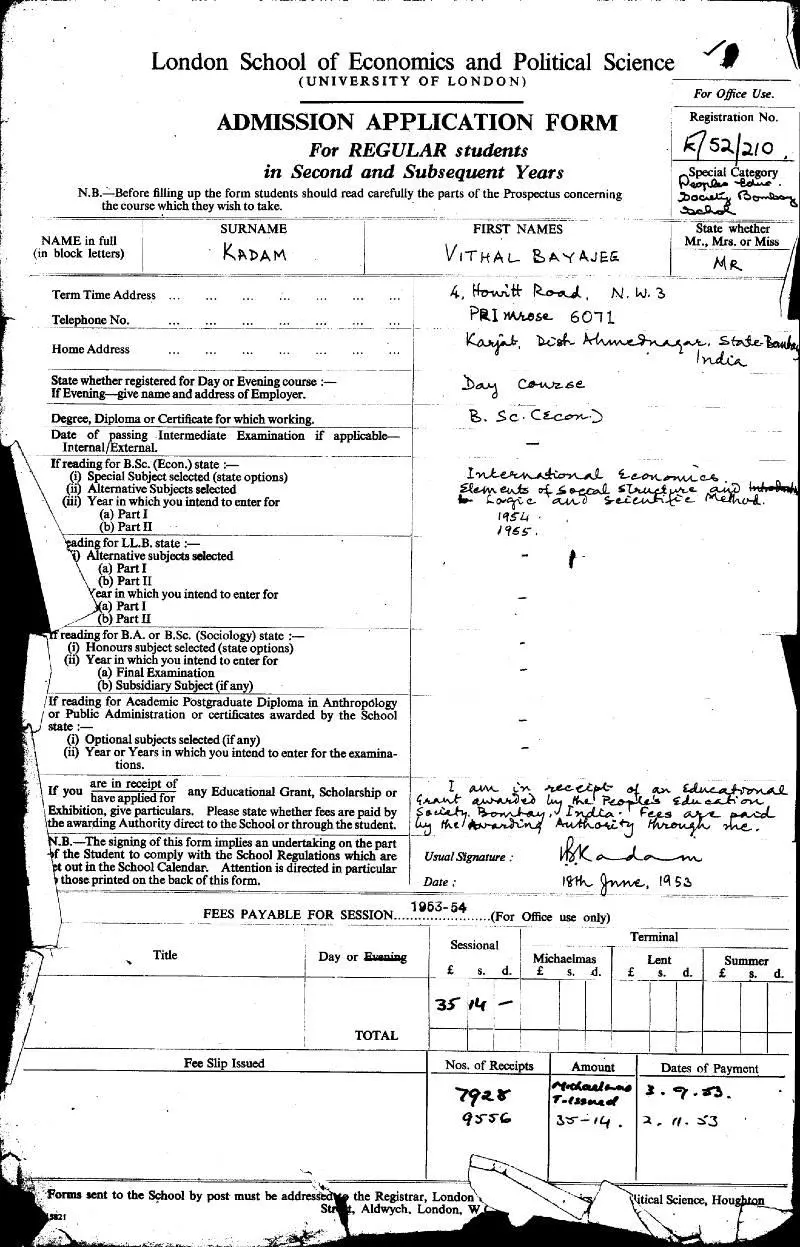 London School of Economics and Political Science
(UNIVERSITY OF LONDON)
ADMISSION APPLICATION FORM
For REGULAR students
in Second and Subsequent Years
N.B.—Before filling up the form students should read carefully the parts of the Prospectus concerning
the course which they wish to take.
For Office Use.
Registration No.
K/52/210
Special Category
Peoples Educ.
Society Bombay
School
NAME in full
(in block letters)
SURNAME
KADAM
FIRST NAMES
VITHAL BAYAJEE
State whether
Mr., Mrs. or Miss
MR
Term Time Address ... ... ... ... ... ... 4, Howitt Road, N.W.3
Telephone No. ... ... ... ... ... ... PRImrose 6071
Home Address ... ... ... ... ... ... Karjat, Dist Ahmednagar. State Bombay
India
State whether registered for Day or Evening course :—
If Evening—give name and address of Employer.
Day course
Degree, Diploma or Certificate for which working.
B. Sc. (Econ.)
Date of passing Intermediate Examination if applicable—
Internal/External.
—
If reading for B.Sc. (Econ.) state :—
(i) Special Subject selected (state options)
(ii) Alternative Subjects selected
(iii) Year in which you intend to enter for
(a) Part I
(b) Part II
International Economics.
Elements of Social Structure and
Logic and Scientific Method.
1954.
1955.
eading for LL.B. state :—
i) Alternative subjects selected
(a) Part I
(b) Part II
Year in which you intend to enter for
(a) Part I
(b) Part II
If reading for B.A. or B.Sc. (Sociology) state :—
(i) Honours subject selected (state options)
(ii) Year in which you intend to enter for
(a) Final Examination
(b) Subsidiary Subject (if any)
If reading for Academic Postgraduate Diploma in Anthropology
or Public Administration or certificates awarded by the School
state :—
(i) Optional subjects selected (if any)
(ii) Year or Years in which you intend to enter for the examina-
tions.
If you are in receipt of
have applied for any Educational Grant, Scholarship or
Exhibition, give particulars. Please state whether fees are paid by
the awarding Authority direct to the School or through the student.
I am in receipt of an Educational
Grant awarded by the People's Education
Society, Bombay, India. Fees are paid
by the Awarding Authority through me.
N.B.—The signing of this form implies an undertaking on the part
of the Student to comply with the School Regulations which are
et out in the School Calendar. Attention is directed in particular
those printed on the back of this form.
Usual Signature : VBKadam
Date : 18th June, 1953
FEES PAYABLE FOR SESSION 1953-54 (For Office use only)
Title
Day or Evening
Sessional
£ s. d.
Terminal
Michaelmas
£ s. d.
Lent
£ s. d.
Summer
£ s. d.
35 14 —
TOTAL
Fee Slip Issued
Nos. of Receipts
Amount
Dates of Payment
7928 Michaelmas T-issued 3.9.53.
9556 35-14. 2.11.53
Forms sent to the School by post must be addressed the Registrar, London litical Science, Houghton
Aldwych, London, W